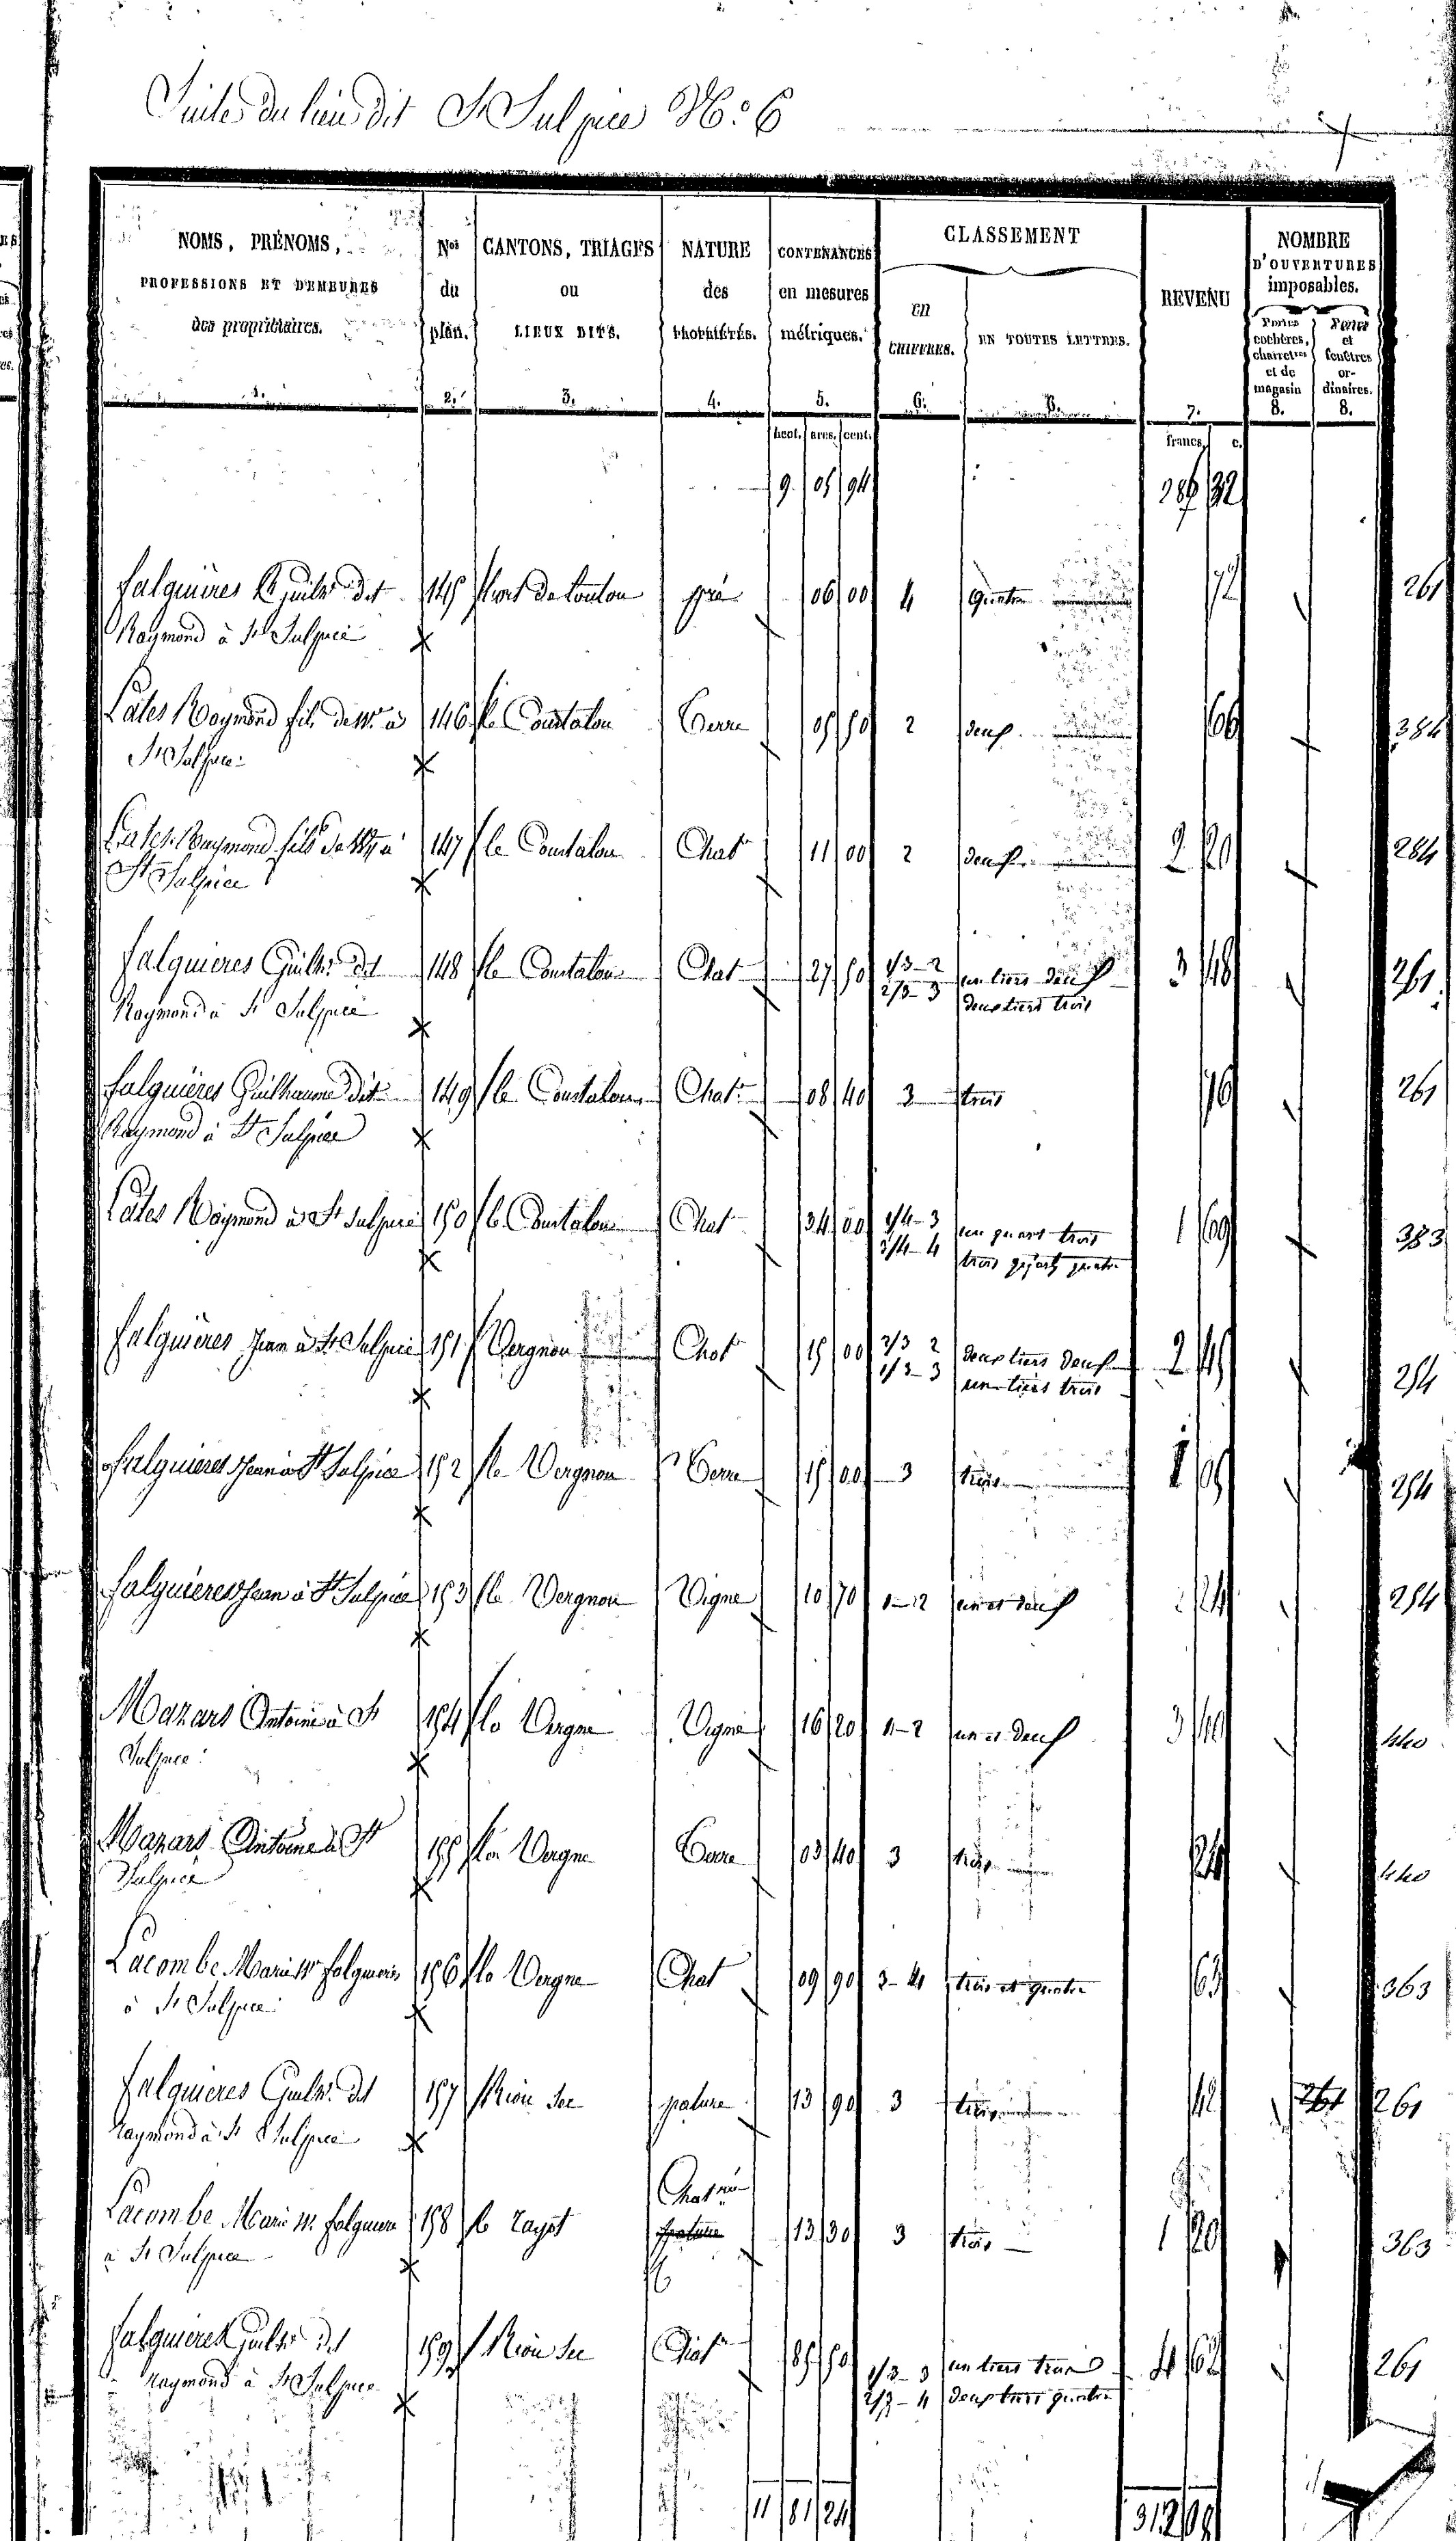 Suite du lieu dit St Sulpice No. 6
NOMS, PRÉNOMS, PROFESSIONS ET DEMEURES des propriétaires. 1.
Nos du plan. 2.
CANTONS, TRIAGES ou LIEUX DITS. 3.
NATURE des PROPRIÉTÉS. 4.
CONTENANCES en mesures métriques. 5.
CLASSEMENT
EN CHIFFRES. 6.
EN TOUTES LETTRES. 6.
REVENU 7.
NOMBRE D'OUVERTURES imposables.
Portes cochères, charretres et de magasin 8.
Portes et fenêtres ordinaires. 8.
hect. ares. cent. francs. c.
9 05 94 32
falguières Guilme dit 145 pré 06 00 4 quatre 72 261
Raymond à St Sulpice
Raymond fils de à 146 le Coustalou Terre 05 50 2 deux 66 384
St Sulpice
Raymond fils de à 147 le Coustalou Chat 11 00 2 deux 2 20 284
St Sulpice
falguieres Guilhe dit 148 le Coustalou Chat 27 50 1/3-2 un tiers deux 3 48 261
Raymond à St Sulpice 2/3-3 deux tiers trois
falguières Guilhaume dit 149 le Coustalou Chat 08 40 3 trois 76 261
Raymond à St Sulpice
Raymond à St Sulpice 150 le Coustalou Chat 34 00 1/4-3 un quart trois 1 69 383
3/4-4 trois quarts quatre
falguières Jean à St Sulpice 151 Vergnou Chat 15 00 2/3 2 deux tiers deux 2 45 254
1/3-3 un tiers trois
falguieres Jean à St Sulpice 152 le Vergnou Terre 15 00 3 trois 1 05 254
falguieres Jean à St Sulpice 153 le Vergnou Vigne 10 70 1-2 un et deux 2 24 254
Mazars Antoine à St 154 la Vergne Vigne 16 20 1-2 un et deux 3 40 440
Sulpice
Mazars Antoine à St 155 la Vergne Terre 03 40 3 trois 24 440
Sulpice
Lacombe Marie 156 la Vergne Chat 09 90 3-4 trois et quatre 63 363
à St Sulpice
falguieres Guilhe dit 157 Rieu Sec pature 13 90 3 trois 42 261 261
Raymond à St Sulpice
Chatrie
Lacombe Marie 158 pature 13 30 3 trois 1 20 363
à St Sulpice
falguieres Guilhe dit 159 Rieu Sec Chat 85 50 1/3-3 un tiers trois 4 62 261
Raymond à St Sulpice 2/3-4 deux tiers quatre
11 81 24 312 09